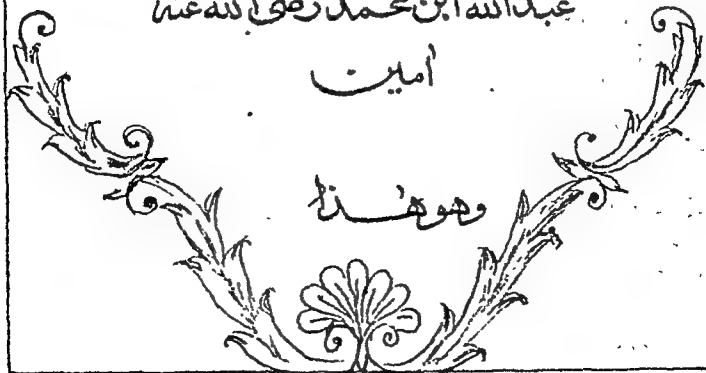 عبد الله ابن محمد رضي الله عنه
أمين
وهو هذا